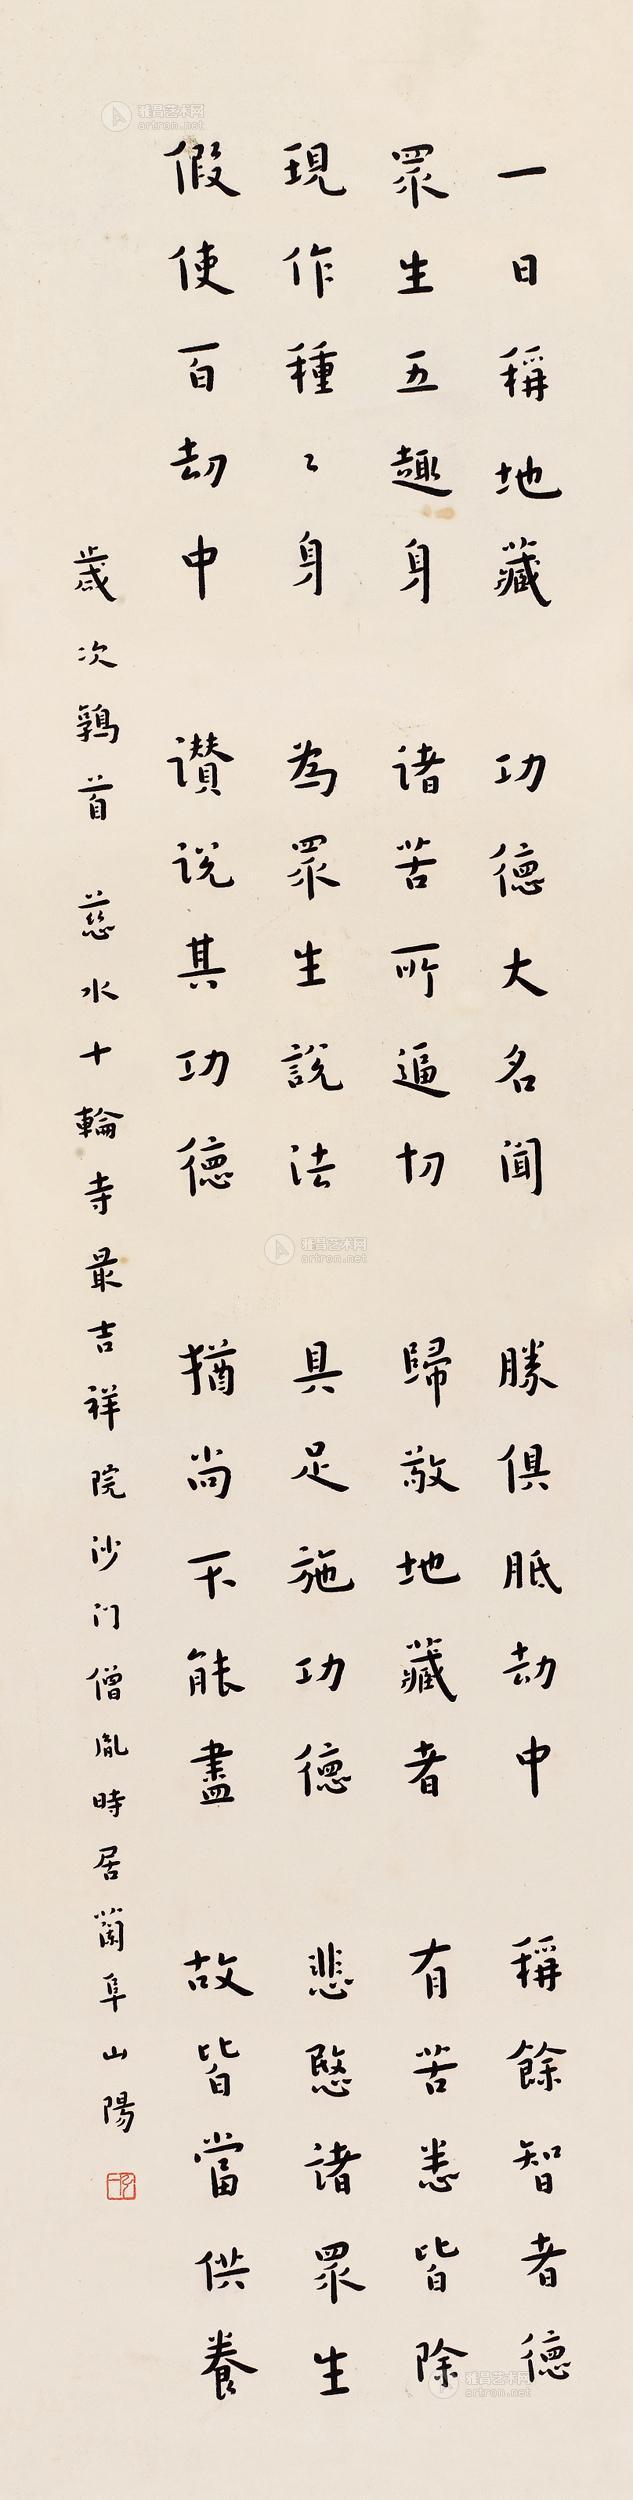 一日稱地藏 功德大名聞 勝俱胝劫中 稱餘智者德
眾生五趣身 諸苦所逼切 歸敬地藏者 有苦悉皆除
現作種〻身 為眾生說法 具足施功德 悲愍諸眾生
假使百劫中 讚說其功德 猶尚不能盡 故皆當供養
歲次鶉首 慈水十輪寺最吉祥院沙门僧胤時居蘭阜山陽
雅昌艺术网
artron.net
雅昌艺术网
artron.net
雅昌艺术网
artron.net